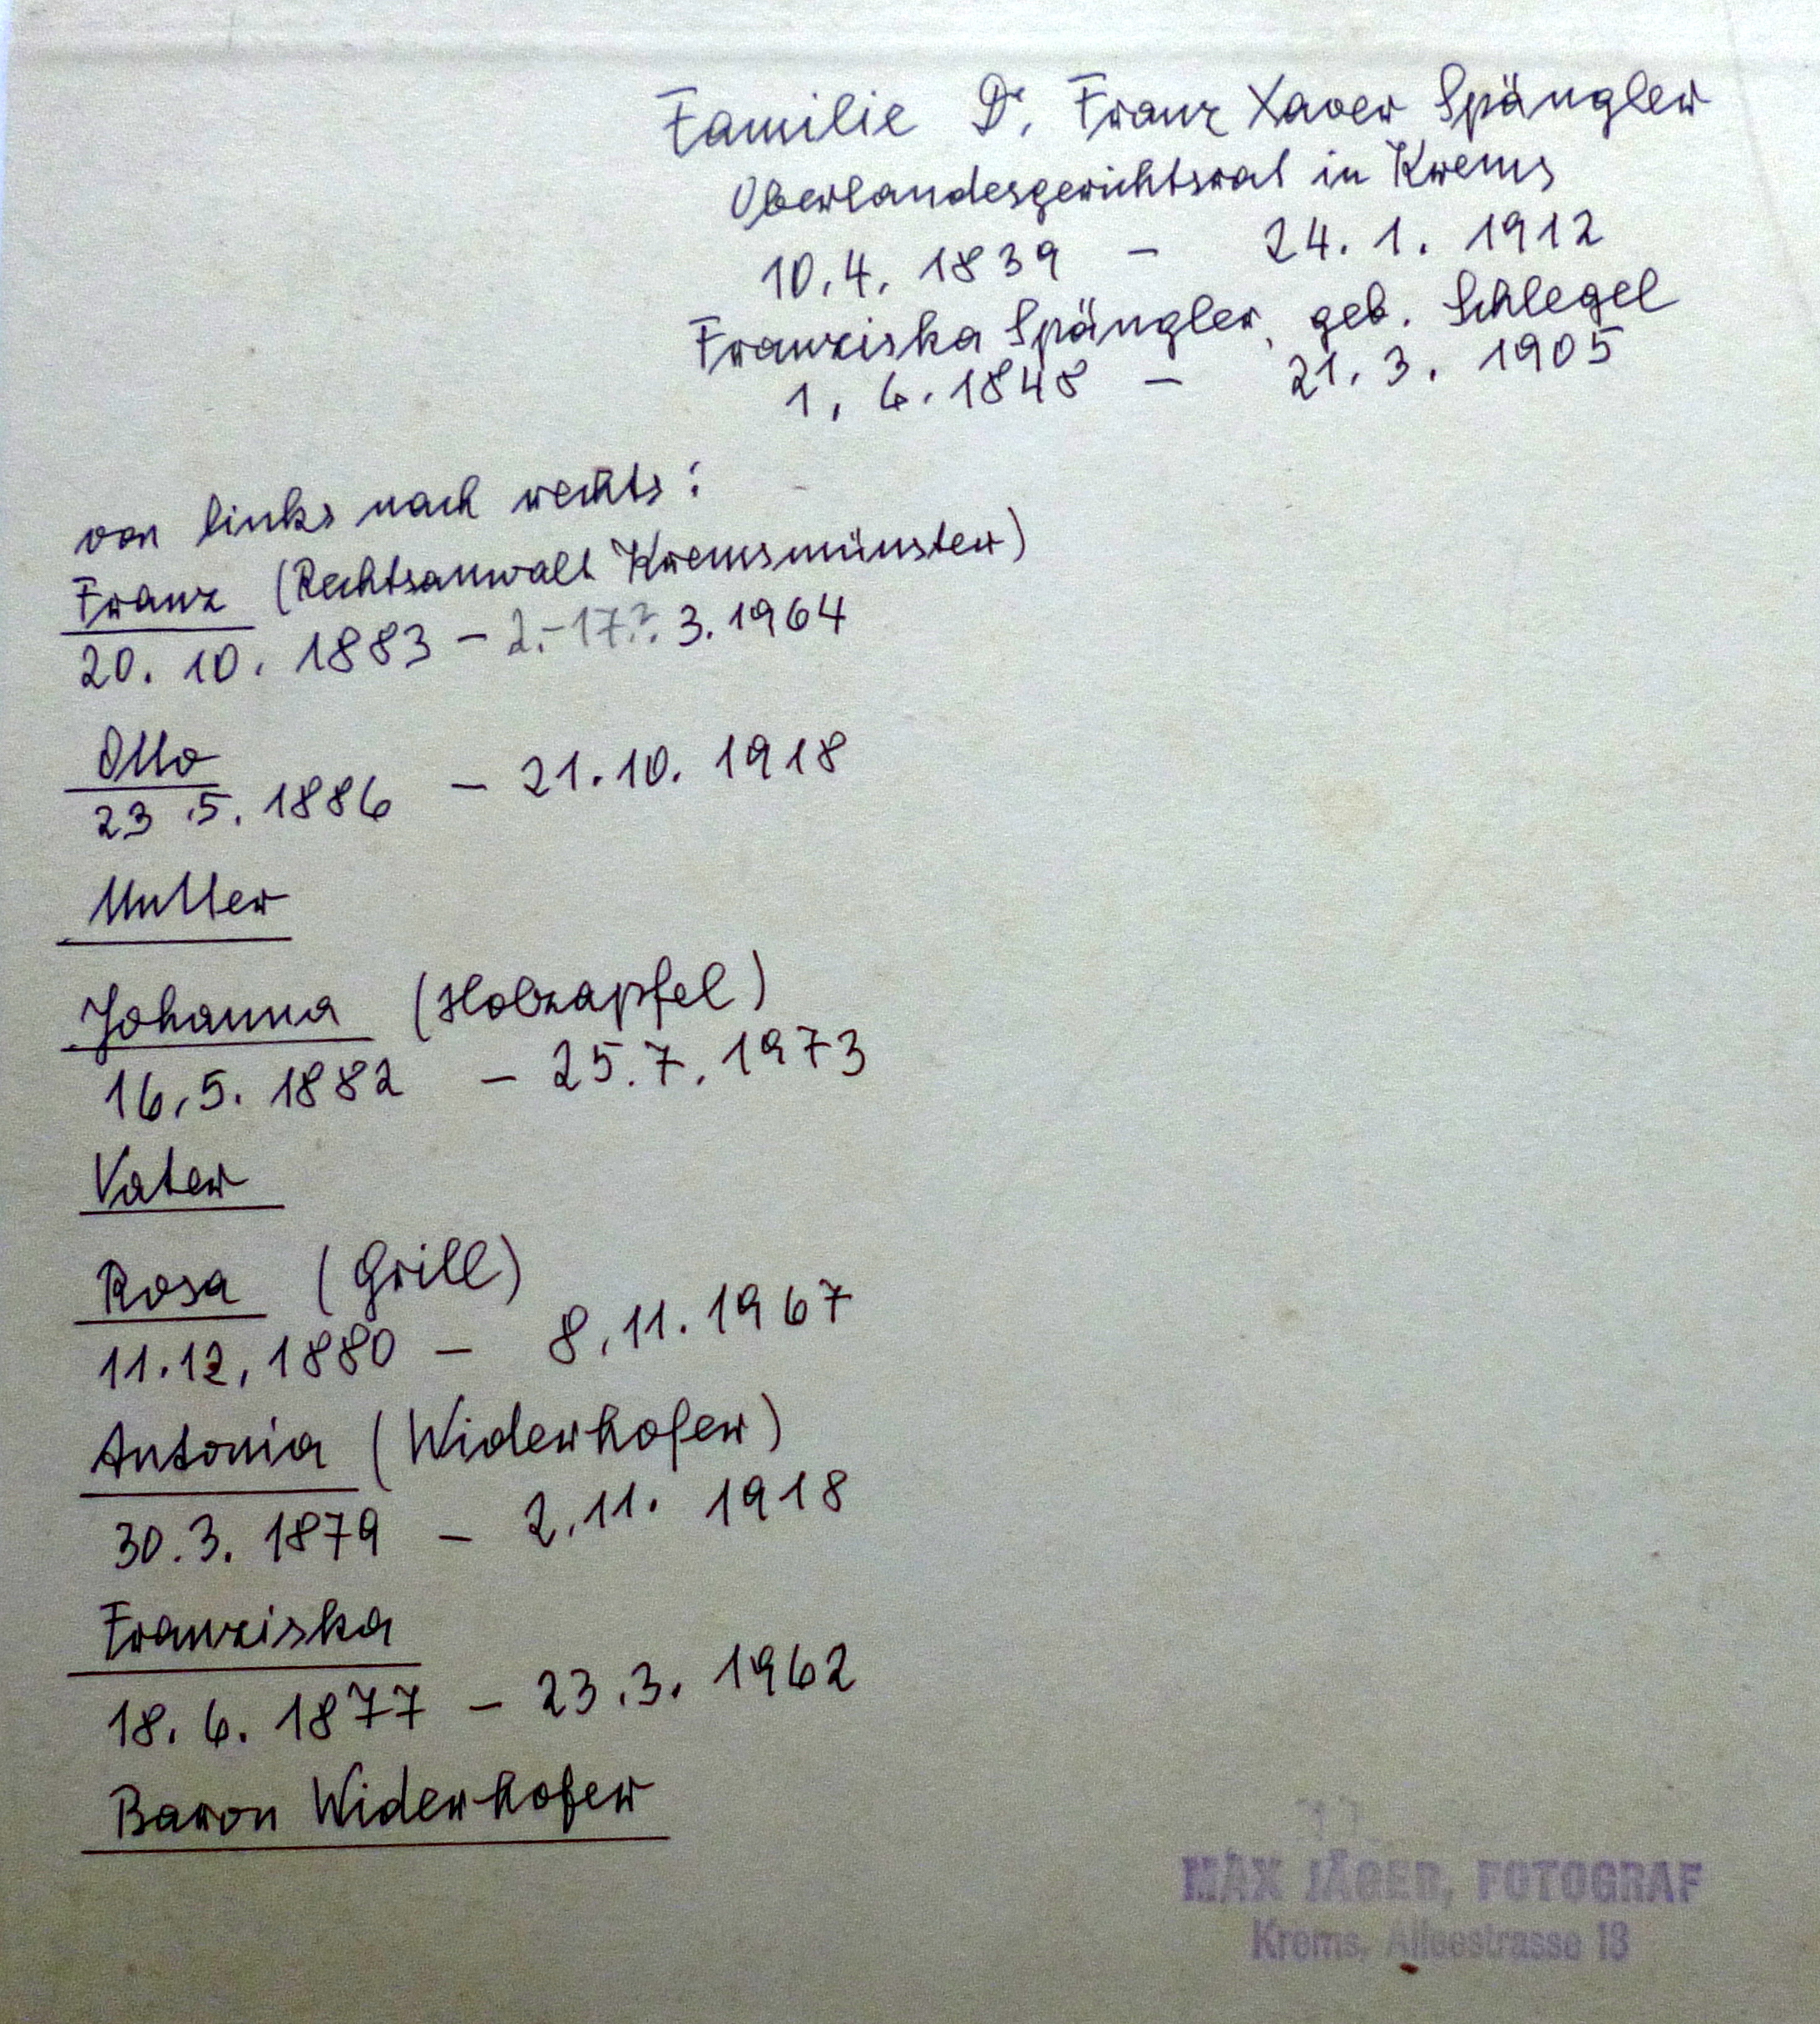 Familie Dr. Franz Xaver Spängler
Oberlandesgerichtsrat in Krems
10.4. 1839 - 24.1. 1912
Franziska Spängler, geb. Schlegel
1. 6. 1848 - 21. 3. 1905
von links nach rechts:
Franz (Rechtsanwalt Kremsmünster)
20. 10. 1883 - 2.-17.?. 3. 1964
Otto
23.5. 1886 - 21.10. 1918
Mutter
Johanna (Holzapfel)
16.5. 1882 - 25.7.1973
Vater
Rosa (Grill)
11.12.1880 - 8.11.1967
Antonia (Widerhofer)
30.3. 1879 - 2.11. 1918
Franziska
18. 6. 1877 - 23.3. 1962
Baron Widerhofer
MAX JÄGER, FOTOGRAF
Krems, Alleestrasse 13